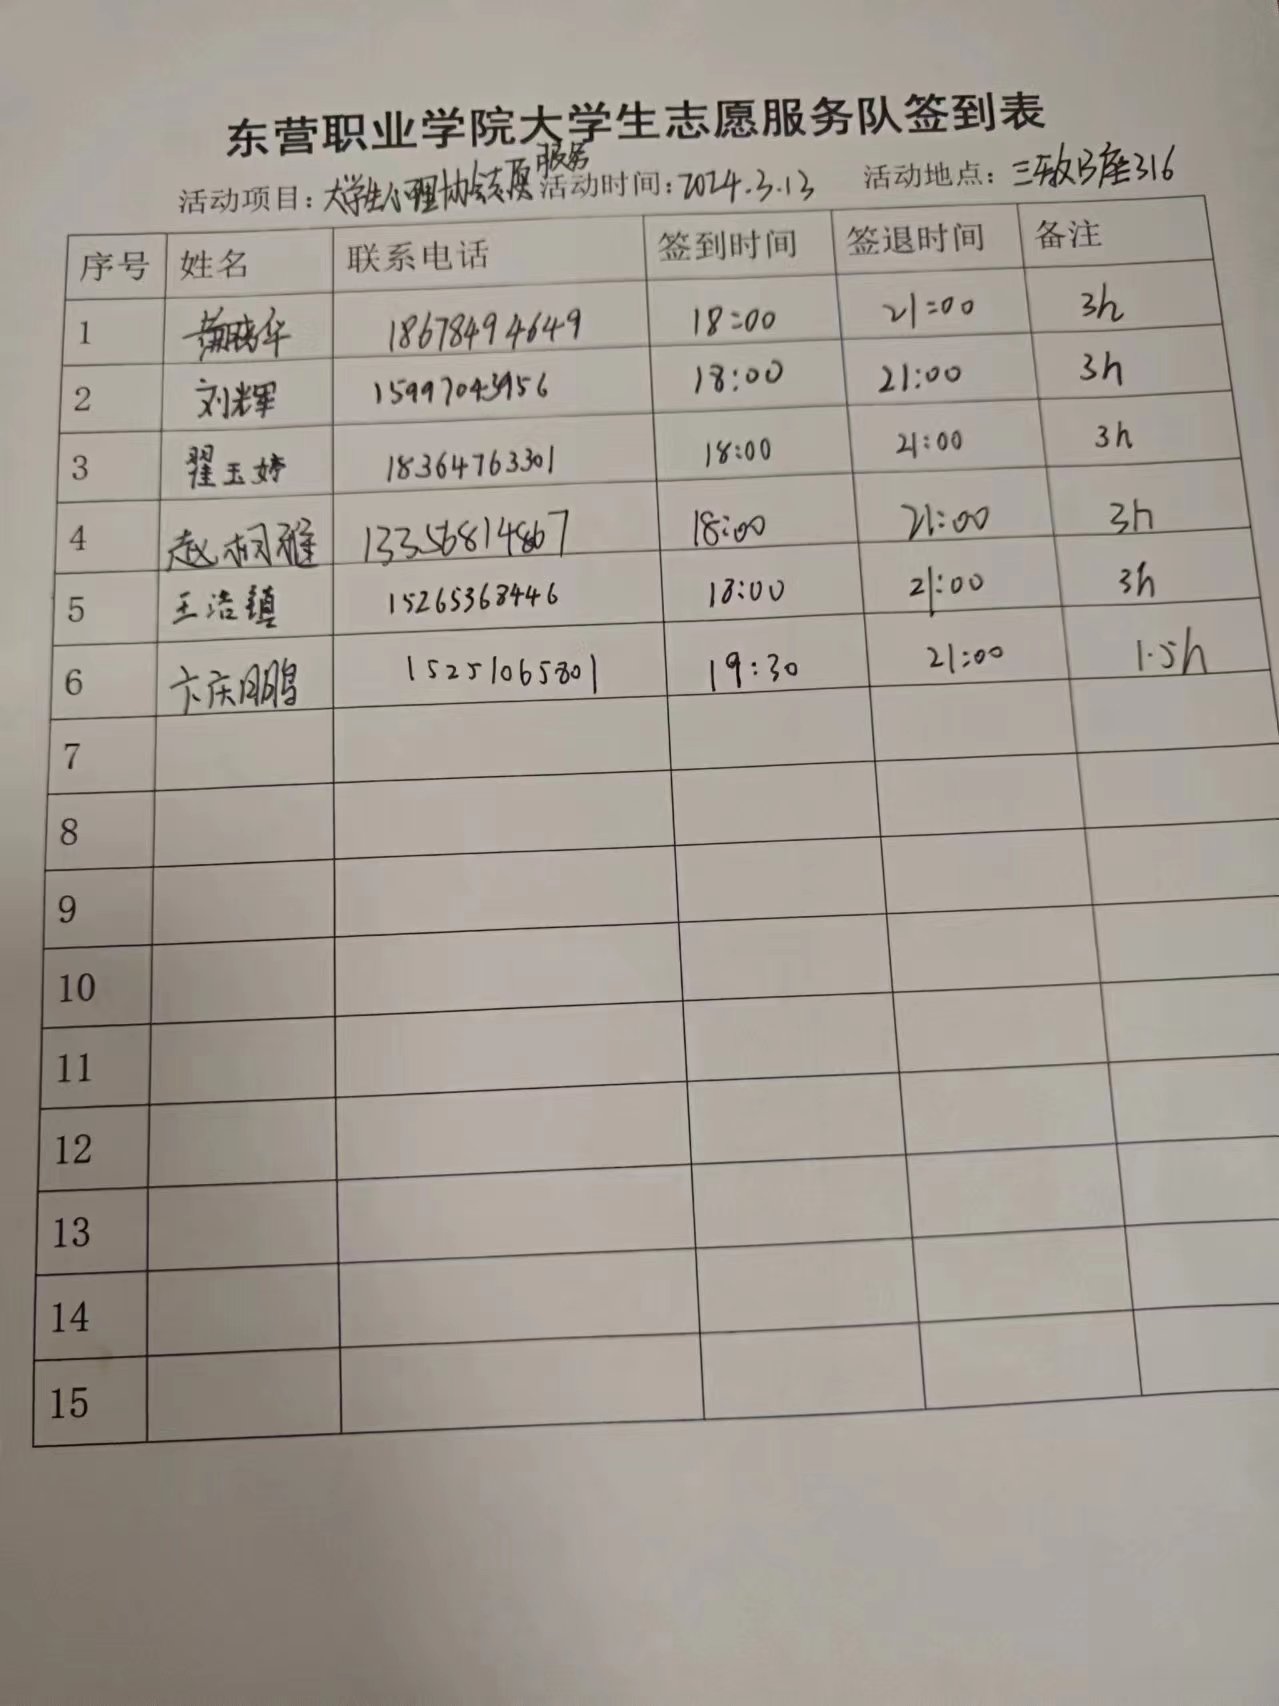 东营职业学院大学生志愿服务队签到表
活动项目：大学生心理协会志愿服务 活动时间：2024.3.13 活动地点：三教B座316
序号 姓名 联系电话 签到时间 签退时间 备注
1 华 18678494649 18:00 21:00 3h
2 刘辉 15997043956 18:00 21:00 3h
3 翟玉婷 18364763301 18:00 21:00 3h
4 赵桐雅 13356814867 18:00 21:00 3h
5 王浩镇 15265368446 18:00 21:00 3h
6 卞庆鹏 15251065801 19:30 21:00 1.5h
7
8
9
10
11
12
13
14
15